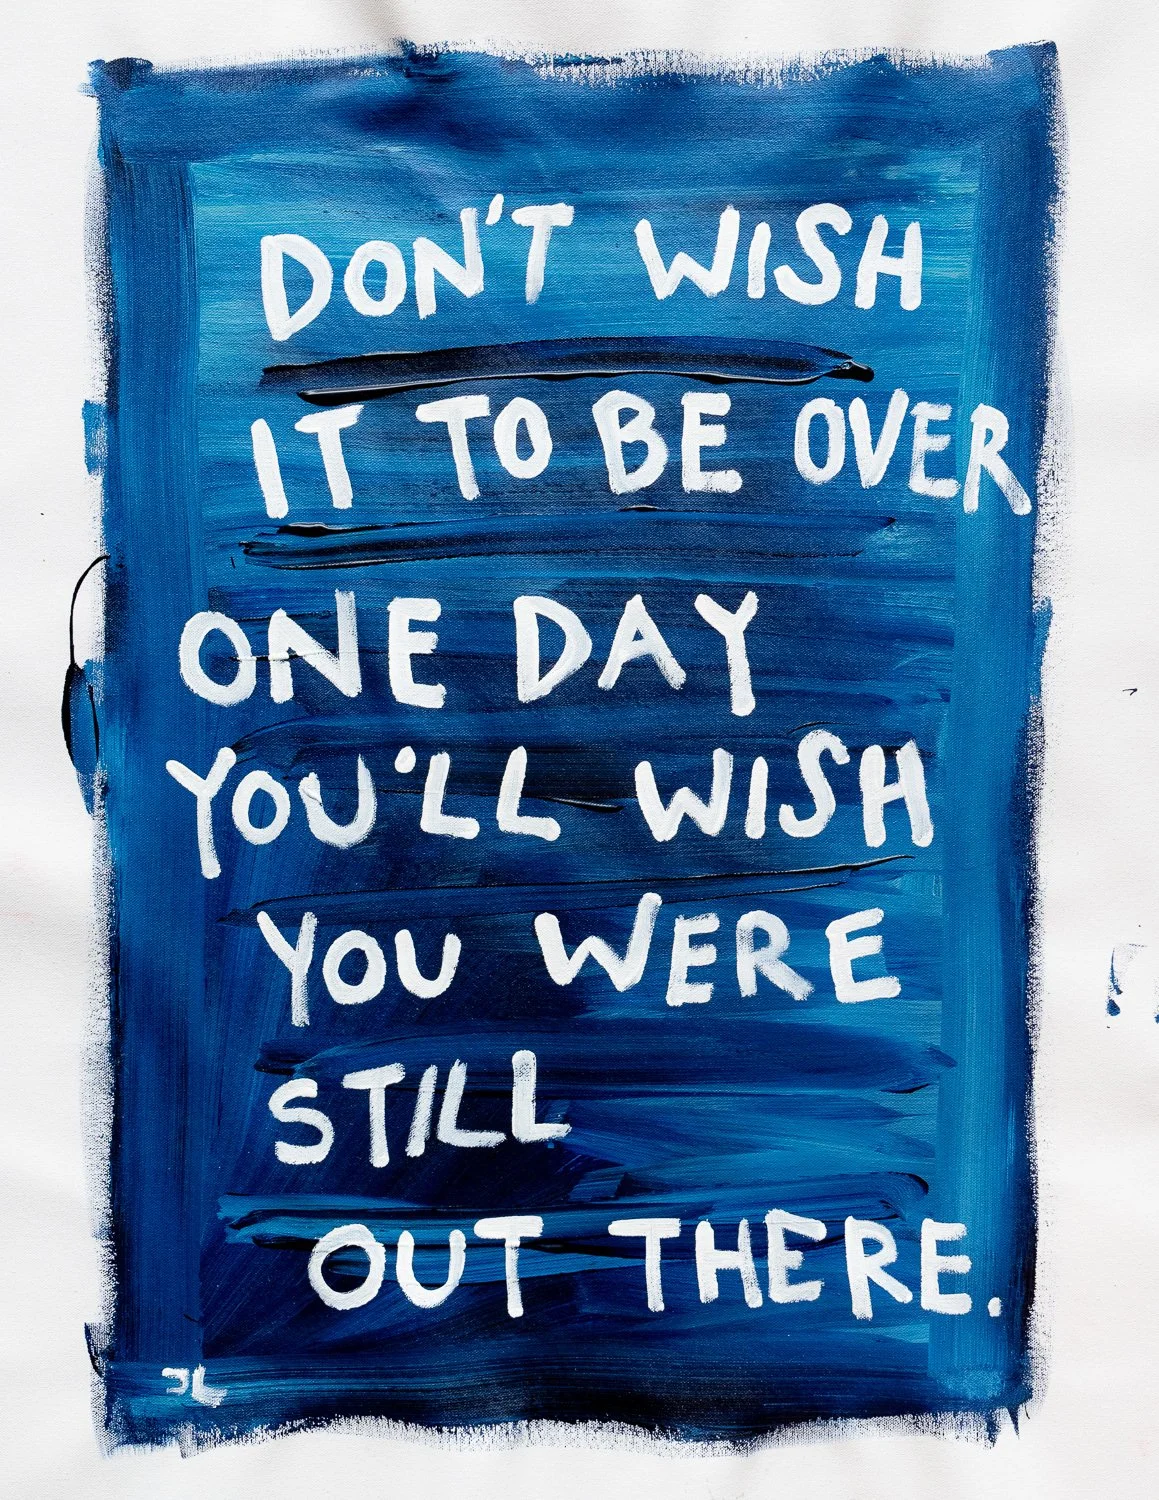 DON'T WISH
IT TO BE OVER
ONE DAY
YOU'LL WISH
YOU WERE
STILL
OUT THERE.
JL